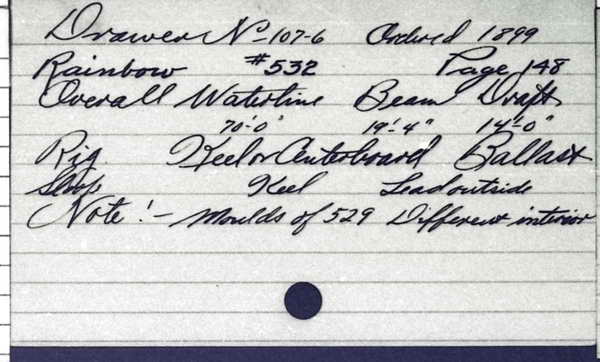 Drawer No 107-6 Ordered 1899
Rainbow #532 Page 148
Overall Waterline Beam Draft
70'-0" 19'-4" 14'-0"
Rig Keel or Centerboard Ballast
Sloop Keel Lead outside
Note:- Moulds of 529 Different interior